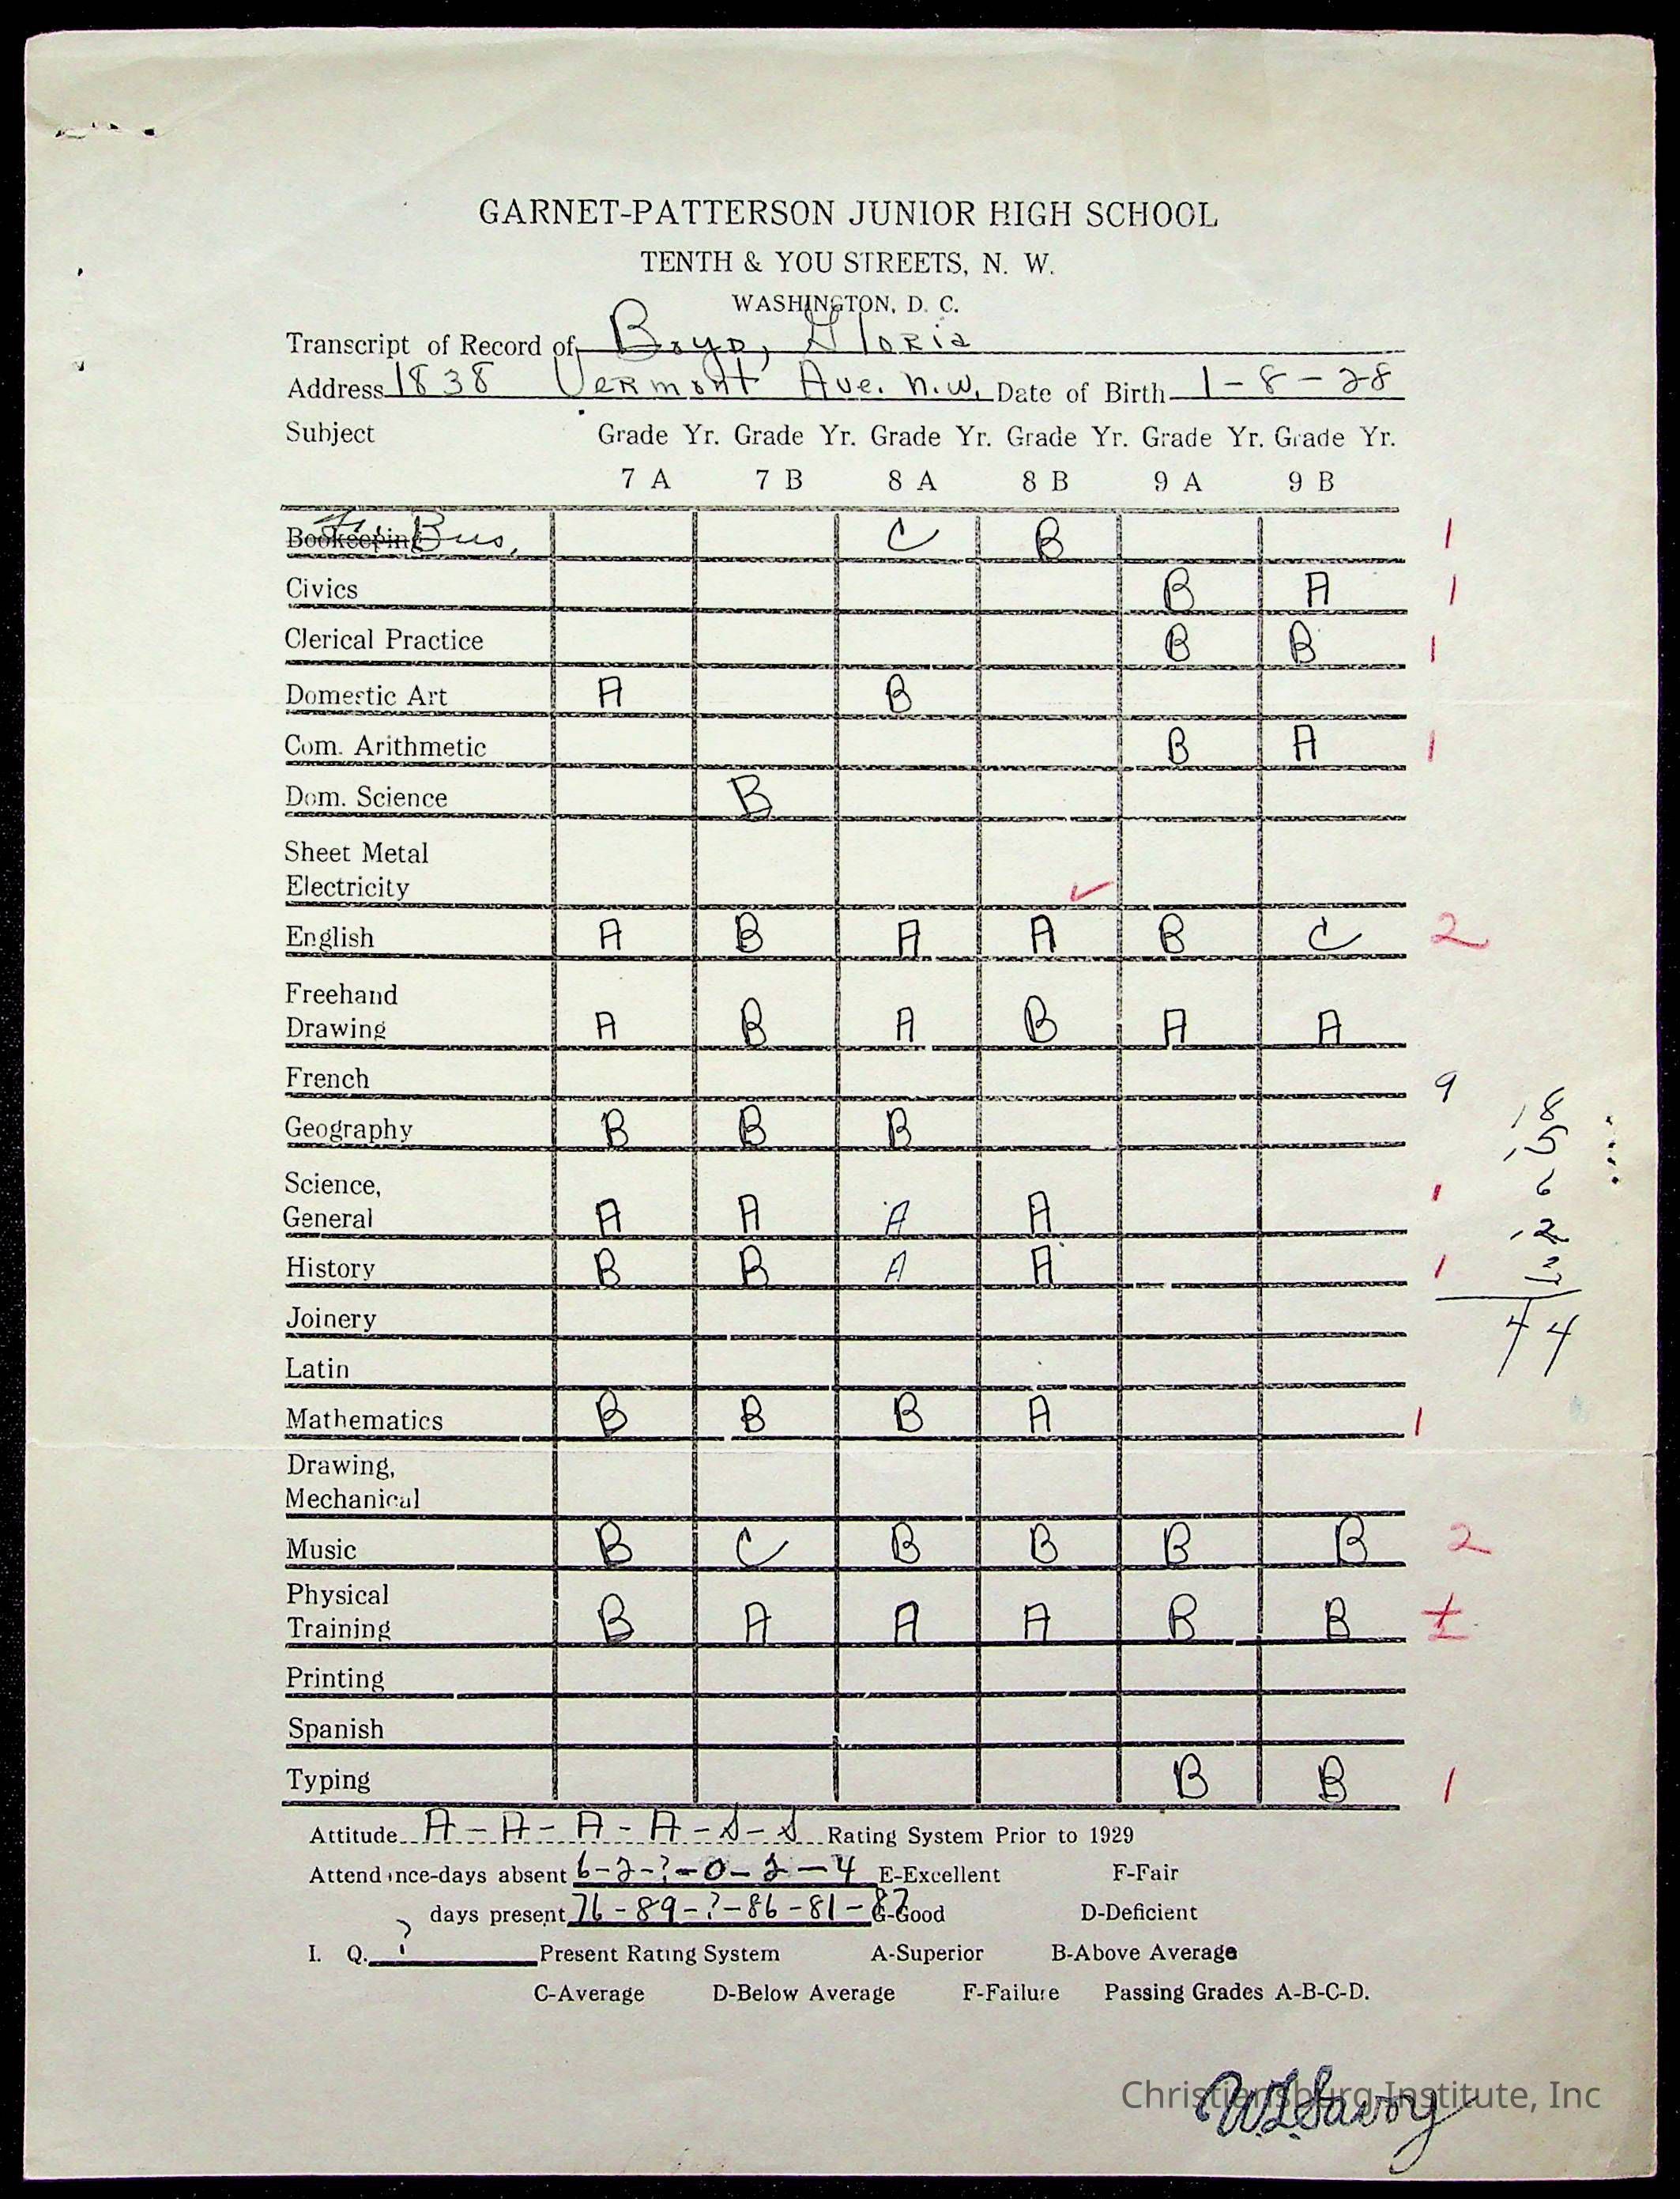 GARNET-PATTERSON JUNIOR HIGH SCHOOL
TENTH & YOU STREETS, N. W.
WASHINGTON, D. C.
Transcript of Record of Boyd, Gloria
Address 1838 Vermont Ave. N.W. Date of Birth 1-8-28
Subject Grade Yr. Grade Yr. Grade Yr. Grade Yr. Grade Yr. Grade Yr.
7 A 7 B 8 A 8 B 9 A 9 B
Bookeeping Bus. C B 1
Civics B A 1
Clerical Practice B B 1
Domestic Art A B
Com. Arithmetic B A 1
Dom. Science B
Sheet Metal
Electricity ✓
English A B A A B C 2
Freehand
Drawing A B A B A A
French 9
18
Geography B B B
15
Science, 1 6
General A A A A
12
History B B A A 1
Joinery 44
Latin
Mathematics B B B A 1
Drawing,
Mechanical
Music B C B B B B 2
Physical
Training B A A A B B
Printing
Spanish
Typing B B 1
Attitude A-A-A-A-S-S Rating System Prior to 1929
Attendance-days absent 6-2-?-0-2-4 E-Excellent F-Fair
days present 76-89-?-86-81-87 G-Good D-Deficient
I. Q. ? Present Rating System A-Superior B-Above Average
C-Average D-Below Average F-Failure Passing Grades A-B-C-D.
Christiansburg Institute, Inc
W.L. Savoy